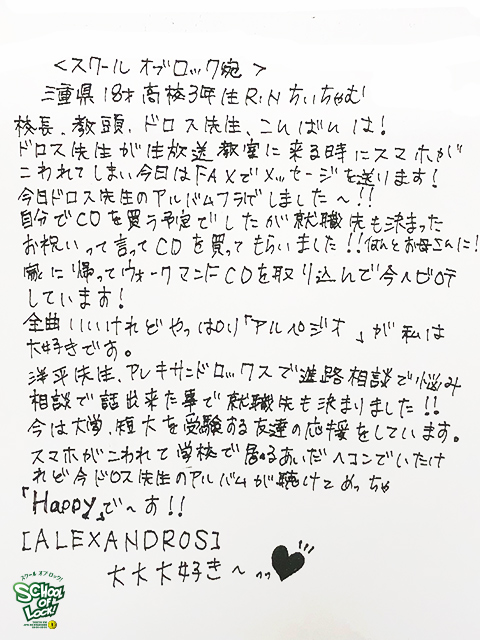 ＜スクール オブロック宛 ＞
三重県 18才 高校3年生 RiN ちぃちゃむ
校長、教頭、ドロス先生、こんばんは！
ドロス先生が生放送教室に来る時にスマホが
こわれてしまい今日はFAXでメッセージを送ります！
今日ドロス先生のアルバムフラゲしました～！！
自分でCDを買う予定でしたが就職先も決まった
お祝いって言ってCDを買ってもらいました！！なんとお母さんに！
家に帰ってウォークマンにCDを取り込んで今ヘビロテ
しています！
全曲いいけれどやっぱり「アルペジオ」が私は
大好きです。
洋平先生、アレキサンドロックスで進路相談で悩み
相談で話出来た事で就職先も決まりました！！
今は大学、短大を受験する友達の応援をしています。
スマホがこわれて学校で居るあいだヘコんでいたけ
れど今ドロス先生のアルバムが聴けてめっちゃ
「Happy」で～す！！
[ALEXANDROS]
大大大好き～
スクール オブ ロック!
SCHOOL OF LOCK!